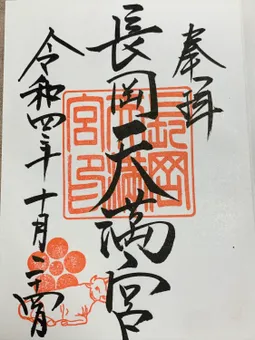 奉拝
長岡天満宮
令和四年十月二十四日